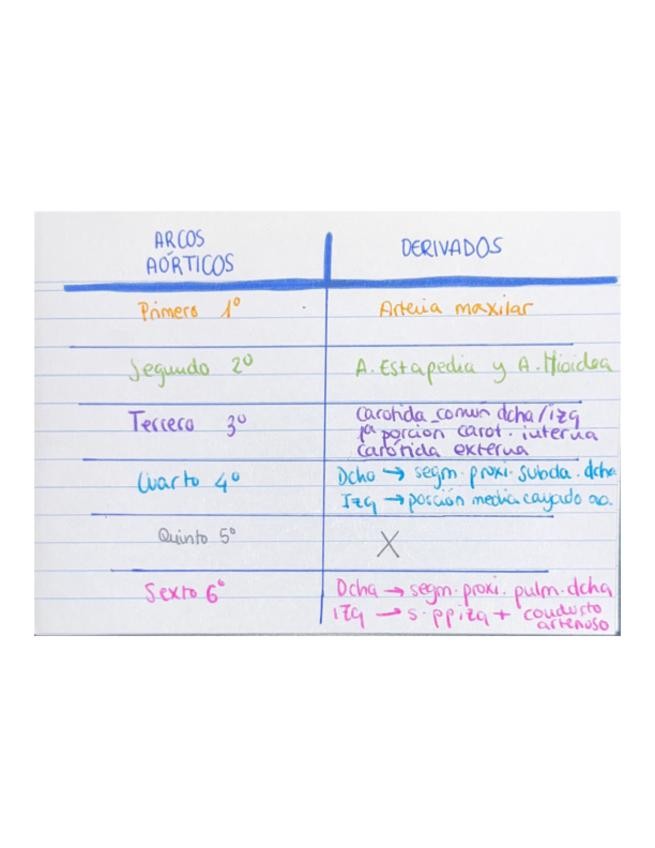 ARCOS
AÓRTICOS
DERIVADOS
Primero 1º
Arteria maxilar
Segundo 2º
A. Estapedia y A. Hioidea
Tercero 3º
Carotida común dcha/izq
1ª porción carot. interna
carótida externa
Cuarto 4º
Dcho → segm. proxi. subcla. dcha
Izq → porción media cayado ao.
Quinto 5º
X
Sexto 6º
Dcha → segm. proxi. pulm. dcha
IZq → s. p p izq + conducto
arterioso